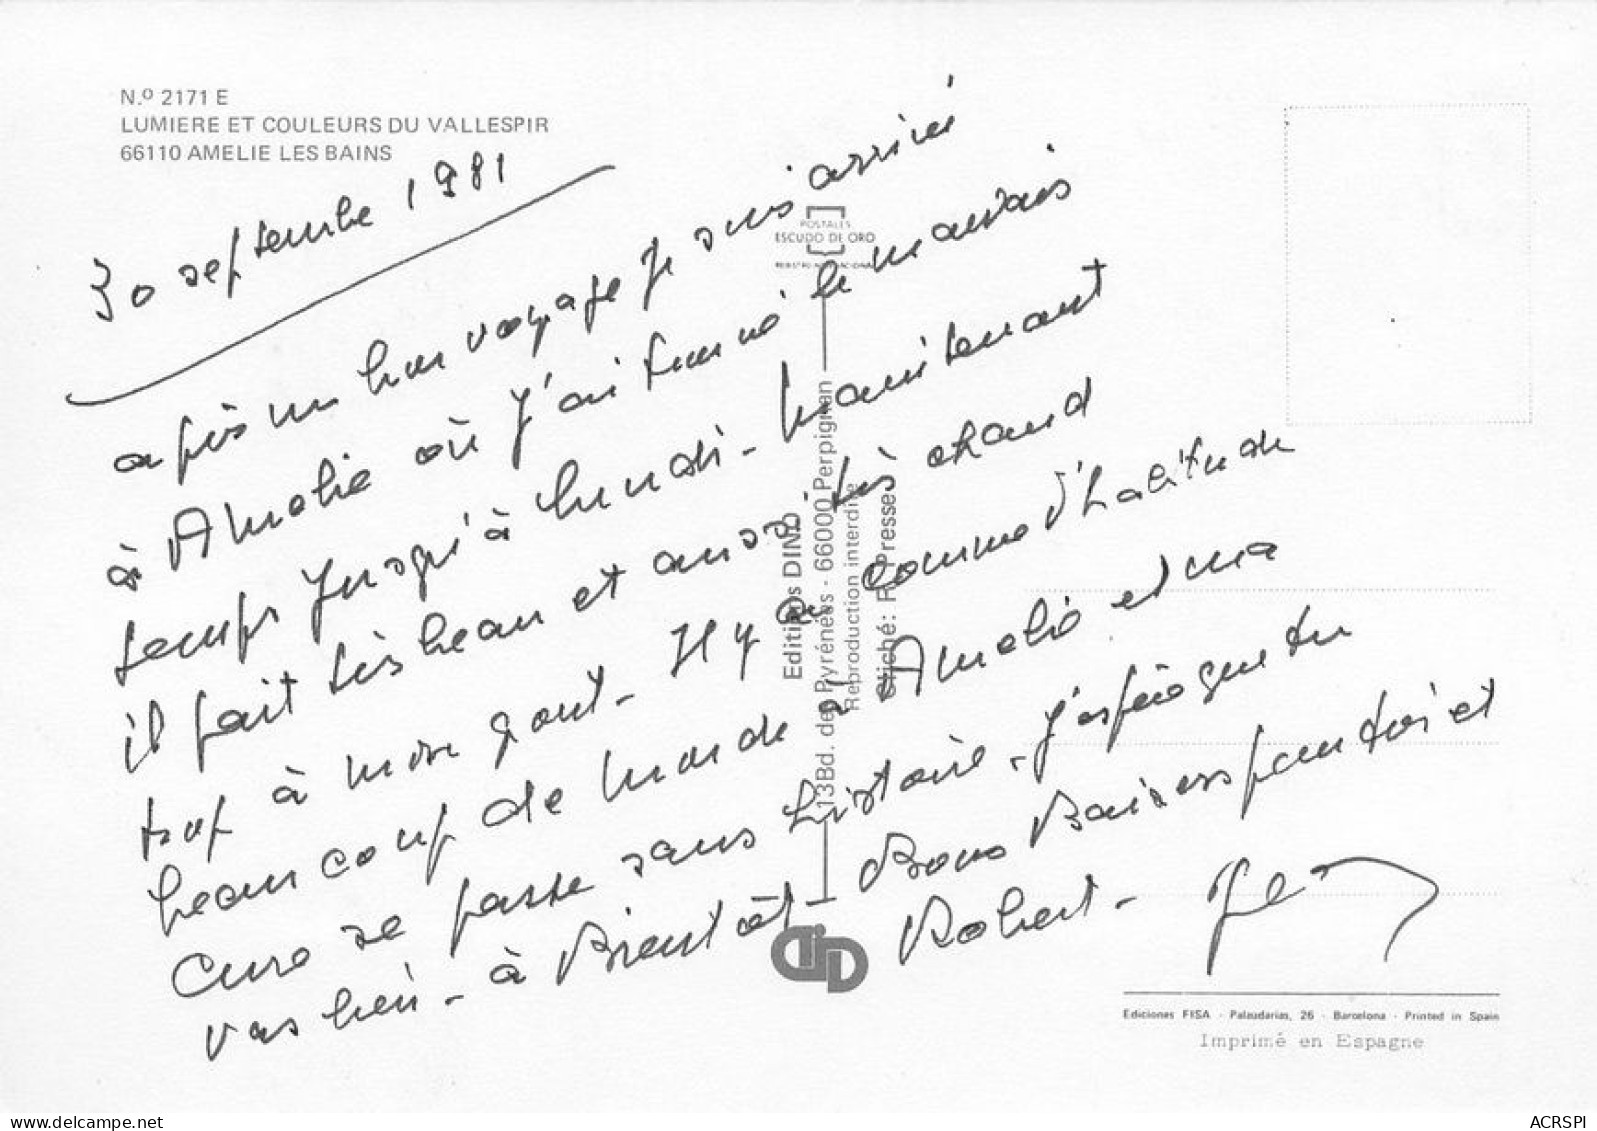 N.º 2171 E
LUMIERE ET COULEURS DU VALLESPIR
66110 AMELIE LES BAINS
30 septembre 1981
après un bon voyage je suis arrivé
à Amelie où j'ai trouvé le mauvais
temps jusqu'à lundi - Maintenant
il fait très beau et aussi très chaud
trop à mon gout - Il y a comme d'habitude
beaucoup de monde à Amelie et ma
Cure se passe sans histoire - J'espère que tu
vas bien - à Bientôt - Bons Baisers pour toi et
Robert -
POSTALES
ESCUDO DE ORO
Editions DINO
13Bd. des Pyrénées - 66000 Perpignan
Reproduction interdite
Cliché: Presse
Ediciones FISA - Palaudarias, 26 - Barcelona - Printed in Spain
Imprimé en Espagne
delcampe.net
ACRSPI